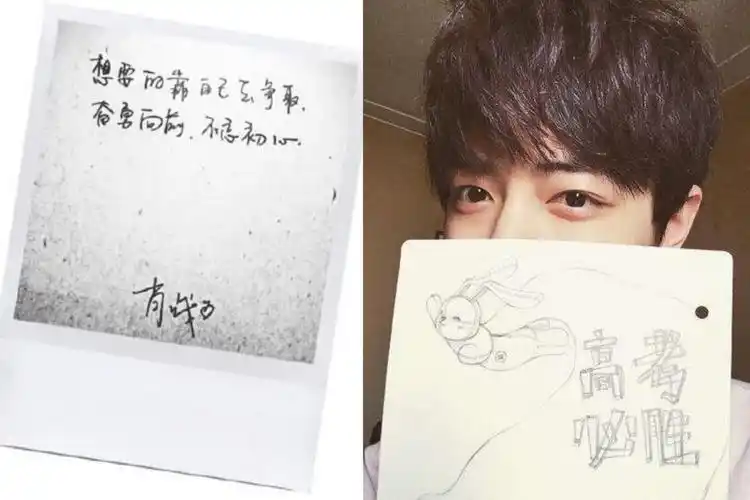 想要的靠自己去争取,
奋勇向前,不忘初心.
肖战
高考
必胜